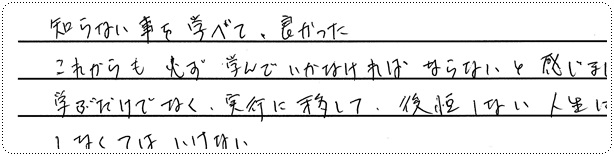 知らない事を学べて、良かった
これからも必ず学んでいかなければならないと感じまし
学ぶだけでなく、実行に移して、後悔しない人生に
しなくてはいけない